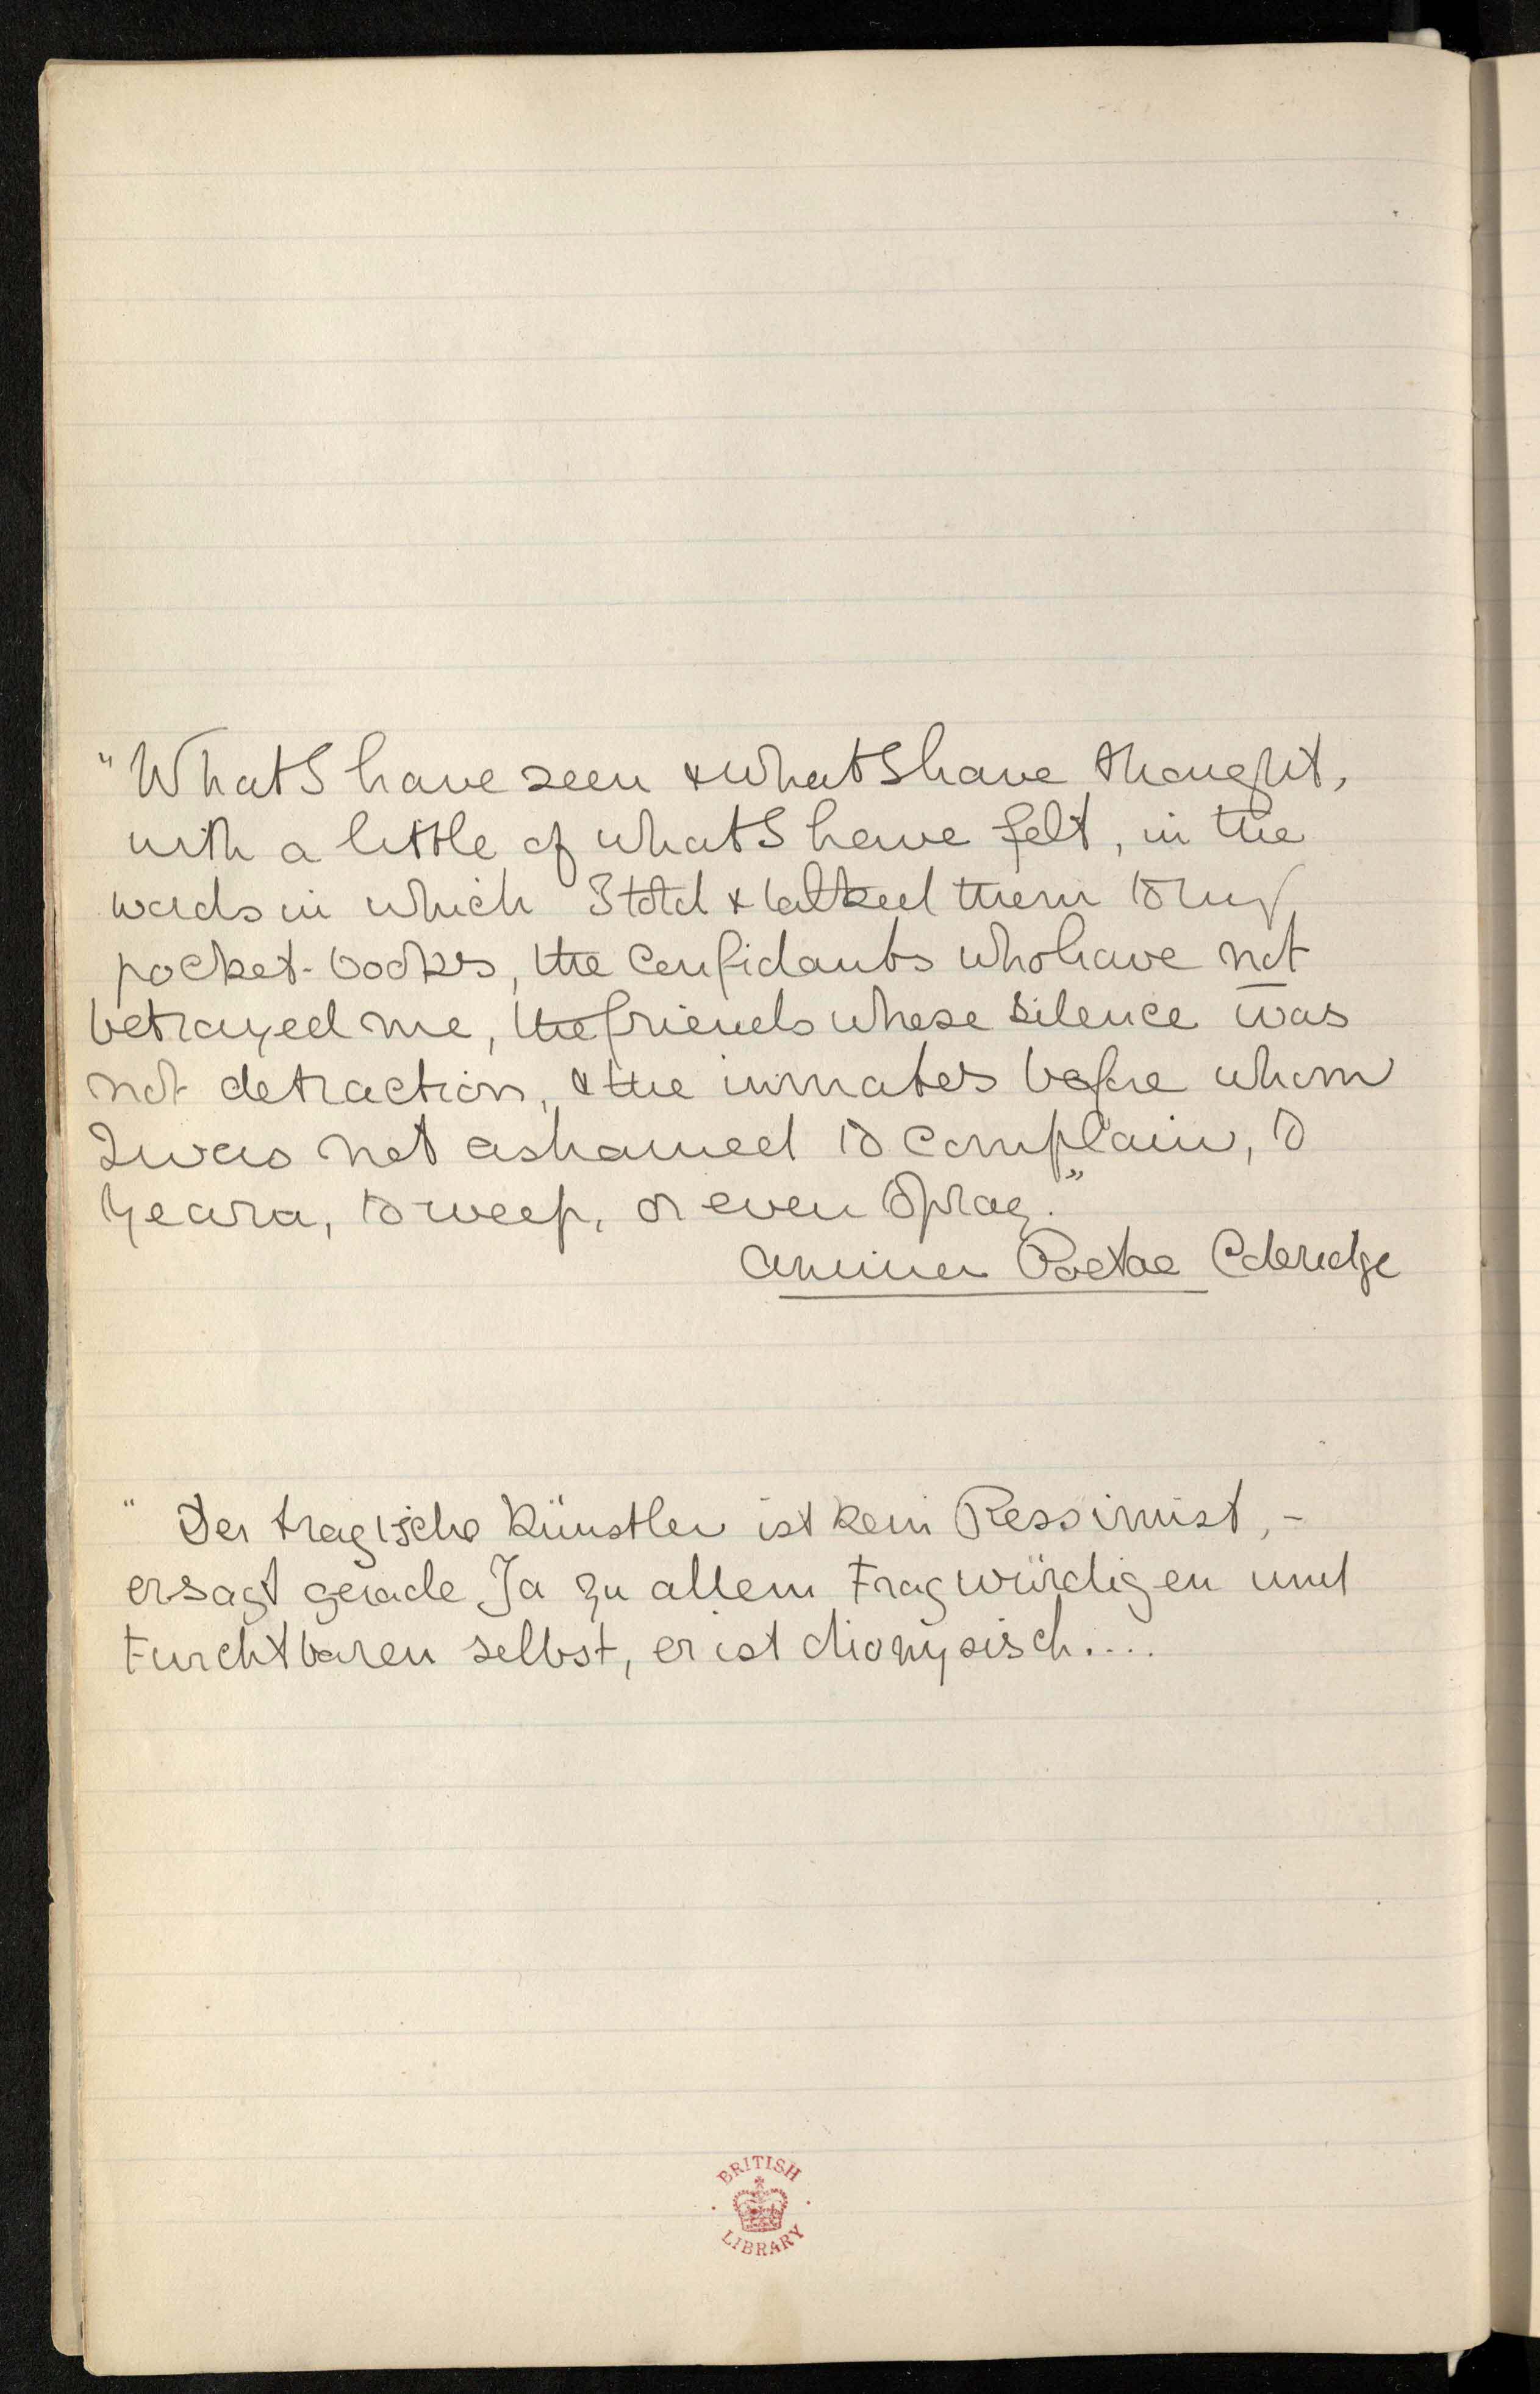 "What I have seen & what I have thought,
with a little of what I have felt, in the
words in which I told & talked them to my
pocket-books, the confidants who have not
betrayed me, the friends whose silence was
not detraction, & the inmates before whom
I was not ashamed to complain, to
yearn, to weep, or even to pray."
Anima Poetae Coleridge
" Der tragische Künstler ist kein Pessimist, -
er sagt gerade Ja zu allem Fragwürdigen und
Furchtbaren selbst, er ist dionysisch....
BRITISH
LIBRARY